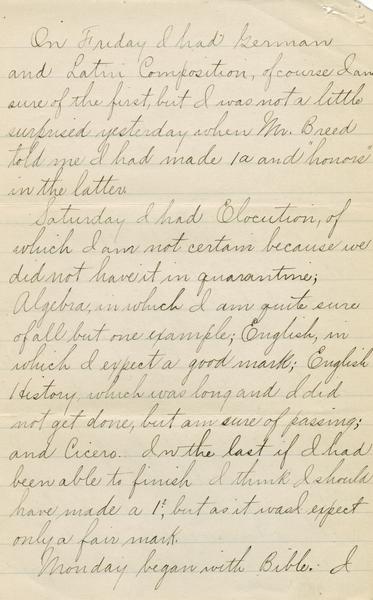 On Friday I had German
and Latin Composition, of course I am
sure of the first, but I was not a little
surprised yesterday when Mr. Breed
told me I had made 1a and "honors"
in the latter.
Saturday I had Elocution, of
which I am not certain because we
did not have it in quarantine;
Algebra, in which I am quite sure
of all but one example; English, in
which I expect a good mark; English
History, which was long and I did
not get done, but am sure of passing;
and Cicero. In the last if I had
been able to finish I think I should
have made a 1?, but as it was I expect
only a fair mark.
Monday began with Bible. I